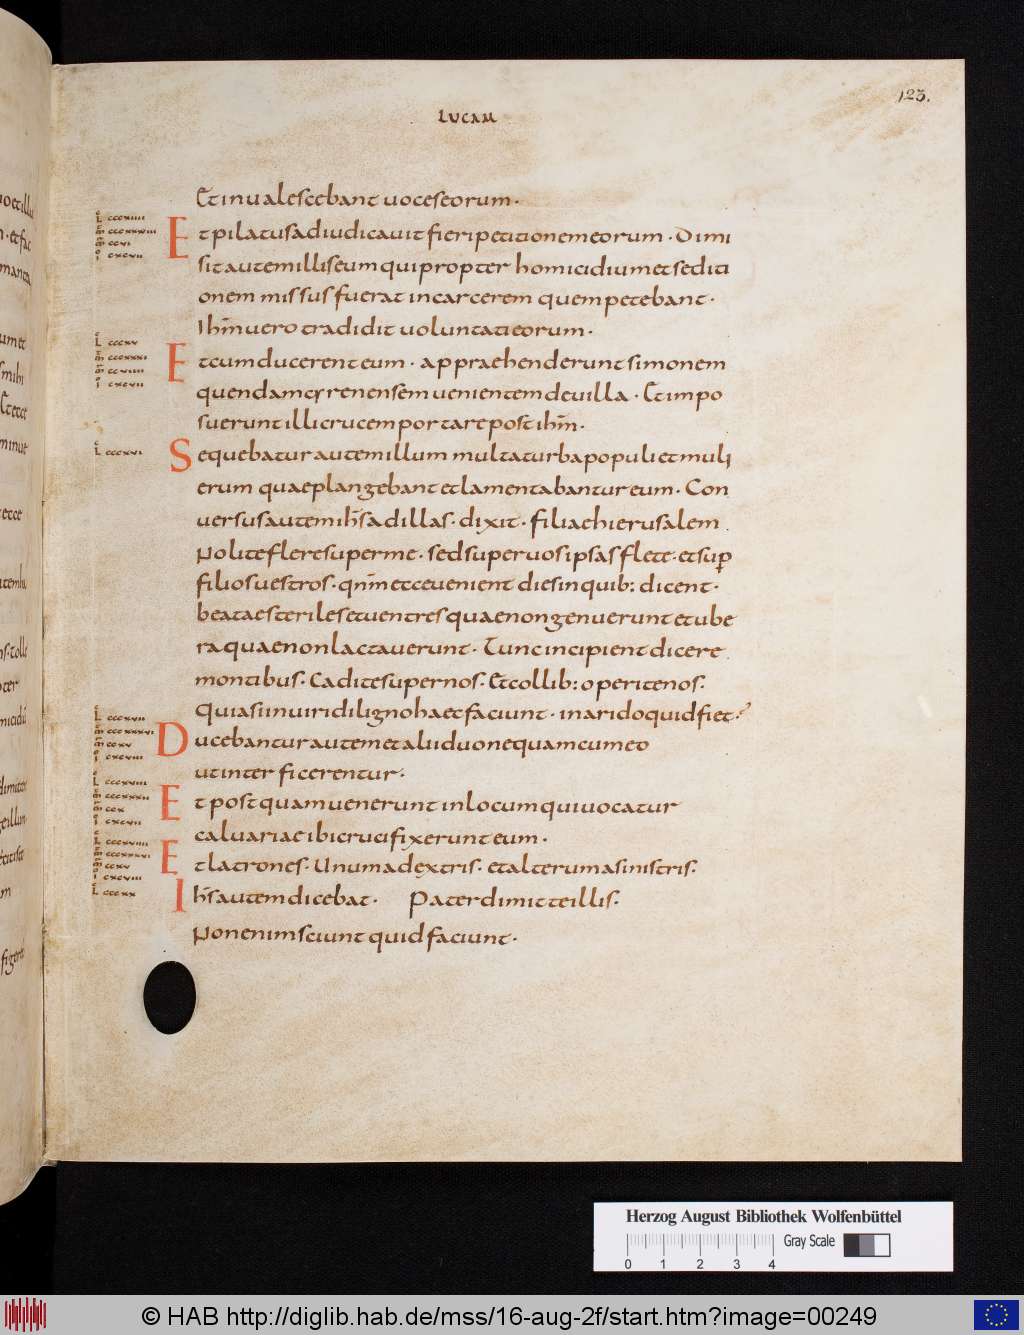 LUCAM
123.
Et inualescebant uoces eorum.
Et pilatus adiudicauit fieri petitionem eorum. Dimi
sit autem illis eum qui propter homicidium et sediti
onem missus fuerat in carcerem quem petebant.
Ihm̄ uero tradidit uoluntati eorum.
Et cum ducerent eum. appraehenderunt simonem
quendam cyrenensem uenientem de uilla. Et impo
suerunt illi crucem portare post ihm̄.
Sequebatur autem illum multa turba populi et muli
erum quae plangebant et lamentabantur eum. Con
uersus autem ih̄s ad illas. dixit. filiae hierusalem
Nolite flere super me. sed super uos ipsas flete. et sup̄
filios uestros. qnm̄ ecce uenient dies in quib: dicent.
beatae steriles et uentres quae non genuerunt et ube
ra quae non lactauerunt. Tunc incipient dicere
montibus. Cadite super nos. Et collib: operite nos.
Quia si in uiridi ligno haec faciunt. in arido quid fiet?
Ducebantur autem et alii duo nequam cum eo
ut interficerentur.
Et postquam uenerunt in locum qui uocatur
caluariae ibi crucifixerunt eum.
Et latrones. Unum a dextris. et alterum a sinistris.
Ih̄s autem dicebat. Pater dimitte illis.
Non enim sciunt quid faciunt.
Herzog August Bibliothek Wolfenbüttel
0 1 2 3 4 Gray Scale
© HAB http://diglib.hab.de/mss/16-aug-2f/start.htm?image=00249